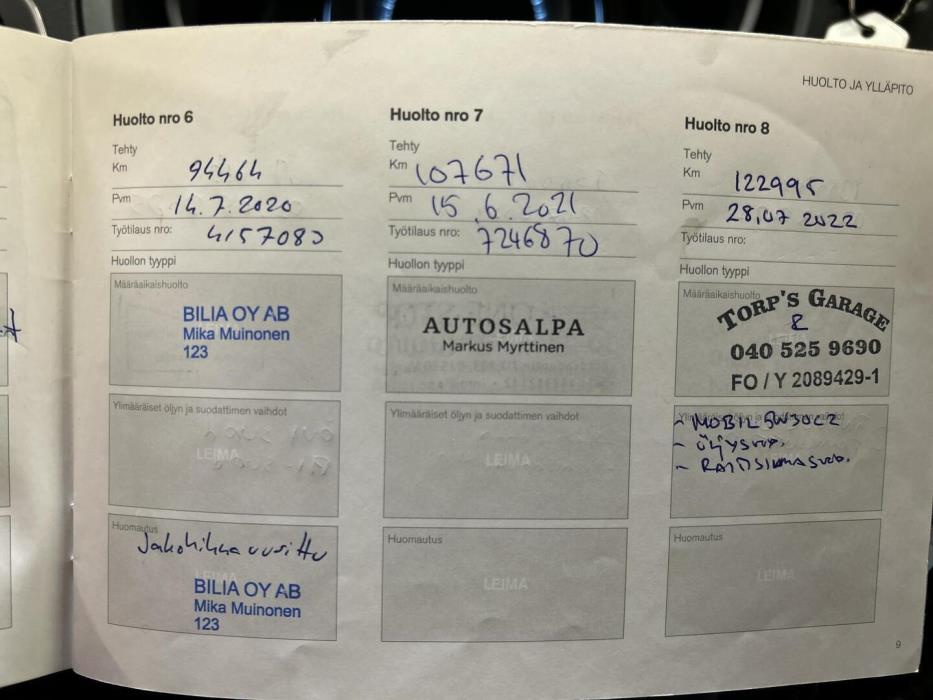 HUOLTO JA YLLÄPITO
Huolto nro 6
Tehty
Km 94464
Pvm 14.7.2020
Työtilaus nro: 4157080
Huollon tyyppi
Määräaikaishuolto
BILIA OY AB
Mika Muinonen
123
Ylimääräiset öljyn ja suodattimen vaihdot
LEIMA
Huomautus
Jakohihna uusittu
LEIMA
BILIA OY AB
Mika Muinonen
123
Huolto nro 7
Tehty
Km 107671
Pvm 15.6.2021
Työtilaus nro: 7246870
Huollon tyyppi
Määräaikaishuolto
AUTOSALPA
Markus Myrttinen
Ylimääräiset öljyn ja suodattimen vaihdot
LEIMA
Huomautus
LEIMA
Huolto nro 8
Tehty
Km 122995
Pvm 28.07 2022
Työtilaus nro:
Huollon tyyppi
Määräaikaishuolto
TORP'S GARAGE
040 525 9690
FO / Y 2089429-1
Ylimääräiset öljyn ja suodattimen vaihdot
- MOBIL 5W30C2
- ÖLJYSUOD.
- RAITISILMASUOD.
Huomautus
LEIMA
9